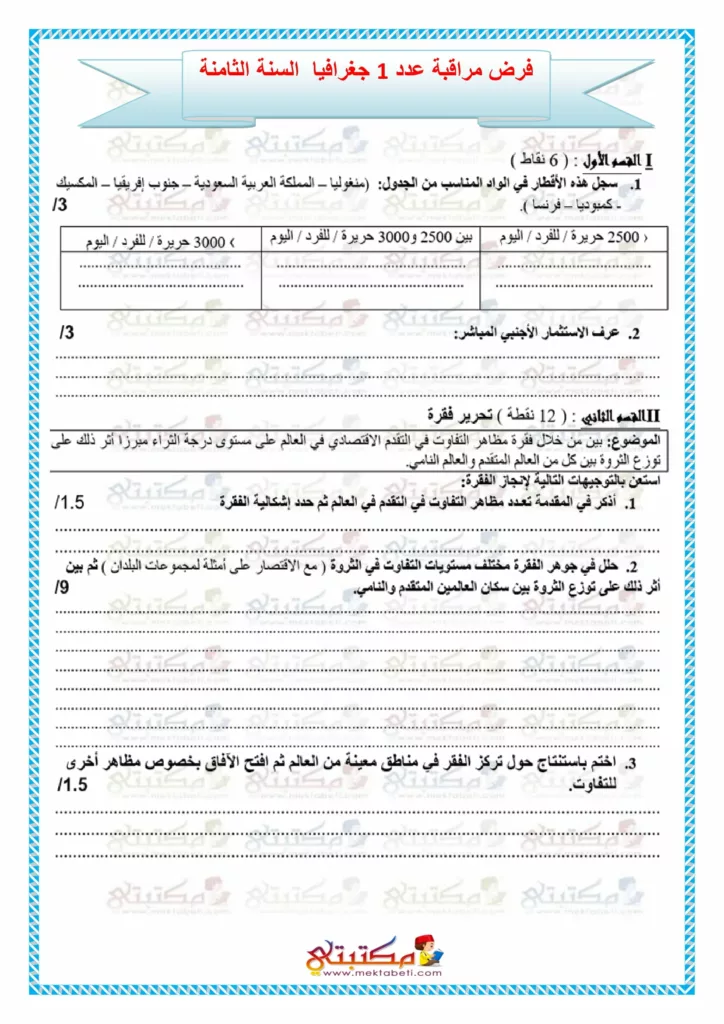 فرض مراقبة عدد 1 جغرافيا السنة الثامنة
I القسم الأول : ( 6 نقاط )
1. سجل هذه الأقطار في الواد المناسب من الجدول: (منغوليا – المملكة العربية السعودية – جنوب إفريقيا – المكسيك
- كمبوديا – فرنسا ). /3
‹ 2500 حريرة / للفرد / اليوم
بين 2500 و3000 حريرة / للفرد / اليوم
› 3000 حريرة / للفرد / اليوم
2. عرف الاستثمار الأجنبي المباشر: /3
II القسم الثاني : ( 12 نقطة ) تحرير فقرة
الموضوع: بين من خلال فقرة مظاهر التفاوت في التقدم الاقتصادي في العالم على مستوى درجة الثراء مبرزا أثر ذلك على
توزع الثروة بين كل من العالم المتقدم والعالم النامي.
استعن بالتوجيهات التالية لإنجاز الفقرة:
1. أذكر في المقدمة تعدد مظاهر التفاوت في التقدم في العالم ثم حدد إشكالية الفقرة /1.5
2. حلل في جوهر الفقرة مختلف مستويات التفاوت في الثروة ( مع الاقتصار على أمثلة لمجموعات البلدان ) ثم بين
أثر ذلك على توزع الثروة بين سكان العالمين المتقدم والنامي. /9
3. اختم باستنتاج حول تركز الفقر في مناطق معينة من العالم ثم افتح الآفاق بخصوص مظاهر أخرى
للتفاوت. /1.5
مكتبتي
www.mektabeti.com